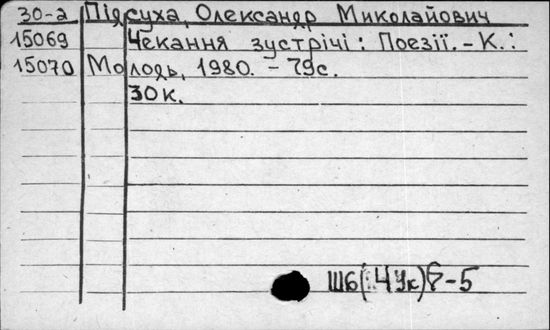 30-а Підсуха, Олександр Миколайович
15069 Чекання зустрічі : Поезії. - К. :
15070 Молодь, 1980. - 79с.
30к.
Ш6( 4Ук)8-5